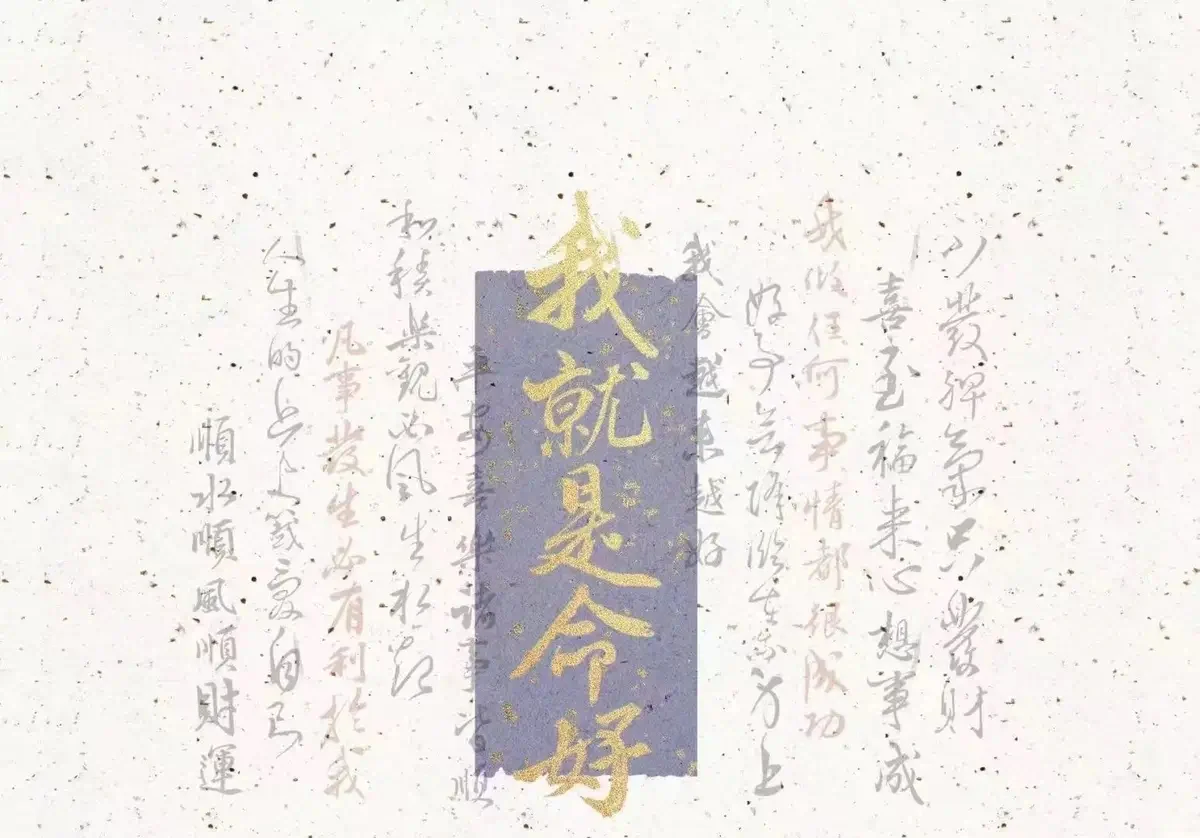 不發脾氣只發財
喜至福來心想事成
我做任何事情都很成功
好事会降臨在我身上
我會越來越好
我就是命好
平安喜樂諸事皆順
積極樂觀必風生水起
凡事發生必有利於我
人生的上上籤是自己
順水順風順財運